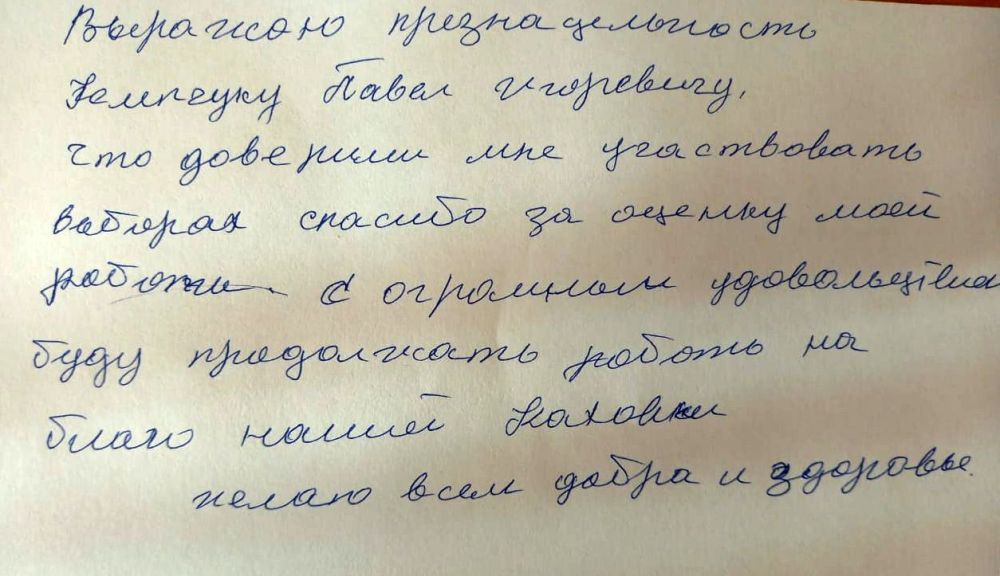 Выражаю презнацельность
Кемпчуку Павел Игоревичу,
что доверили мне участвовать
выборах спасибо за оценку моей
работы С огромном удовольцтвием
буду продолжать роботь на
благо нашей Каховки
желаю всем добра и здоровье.